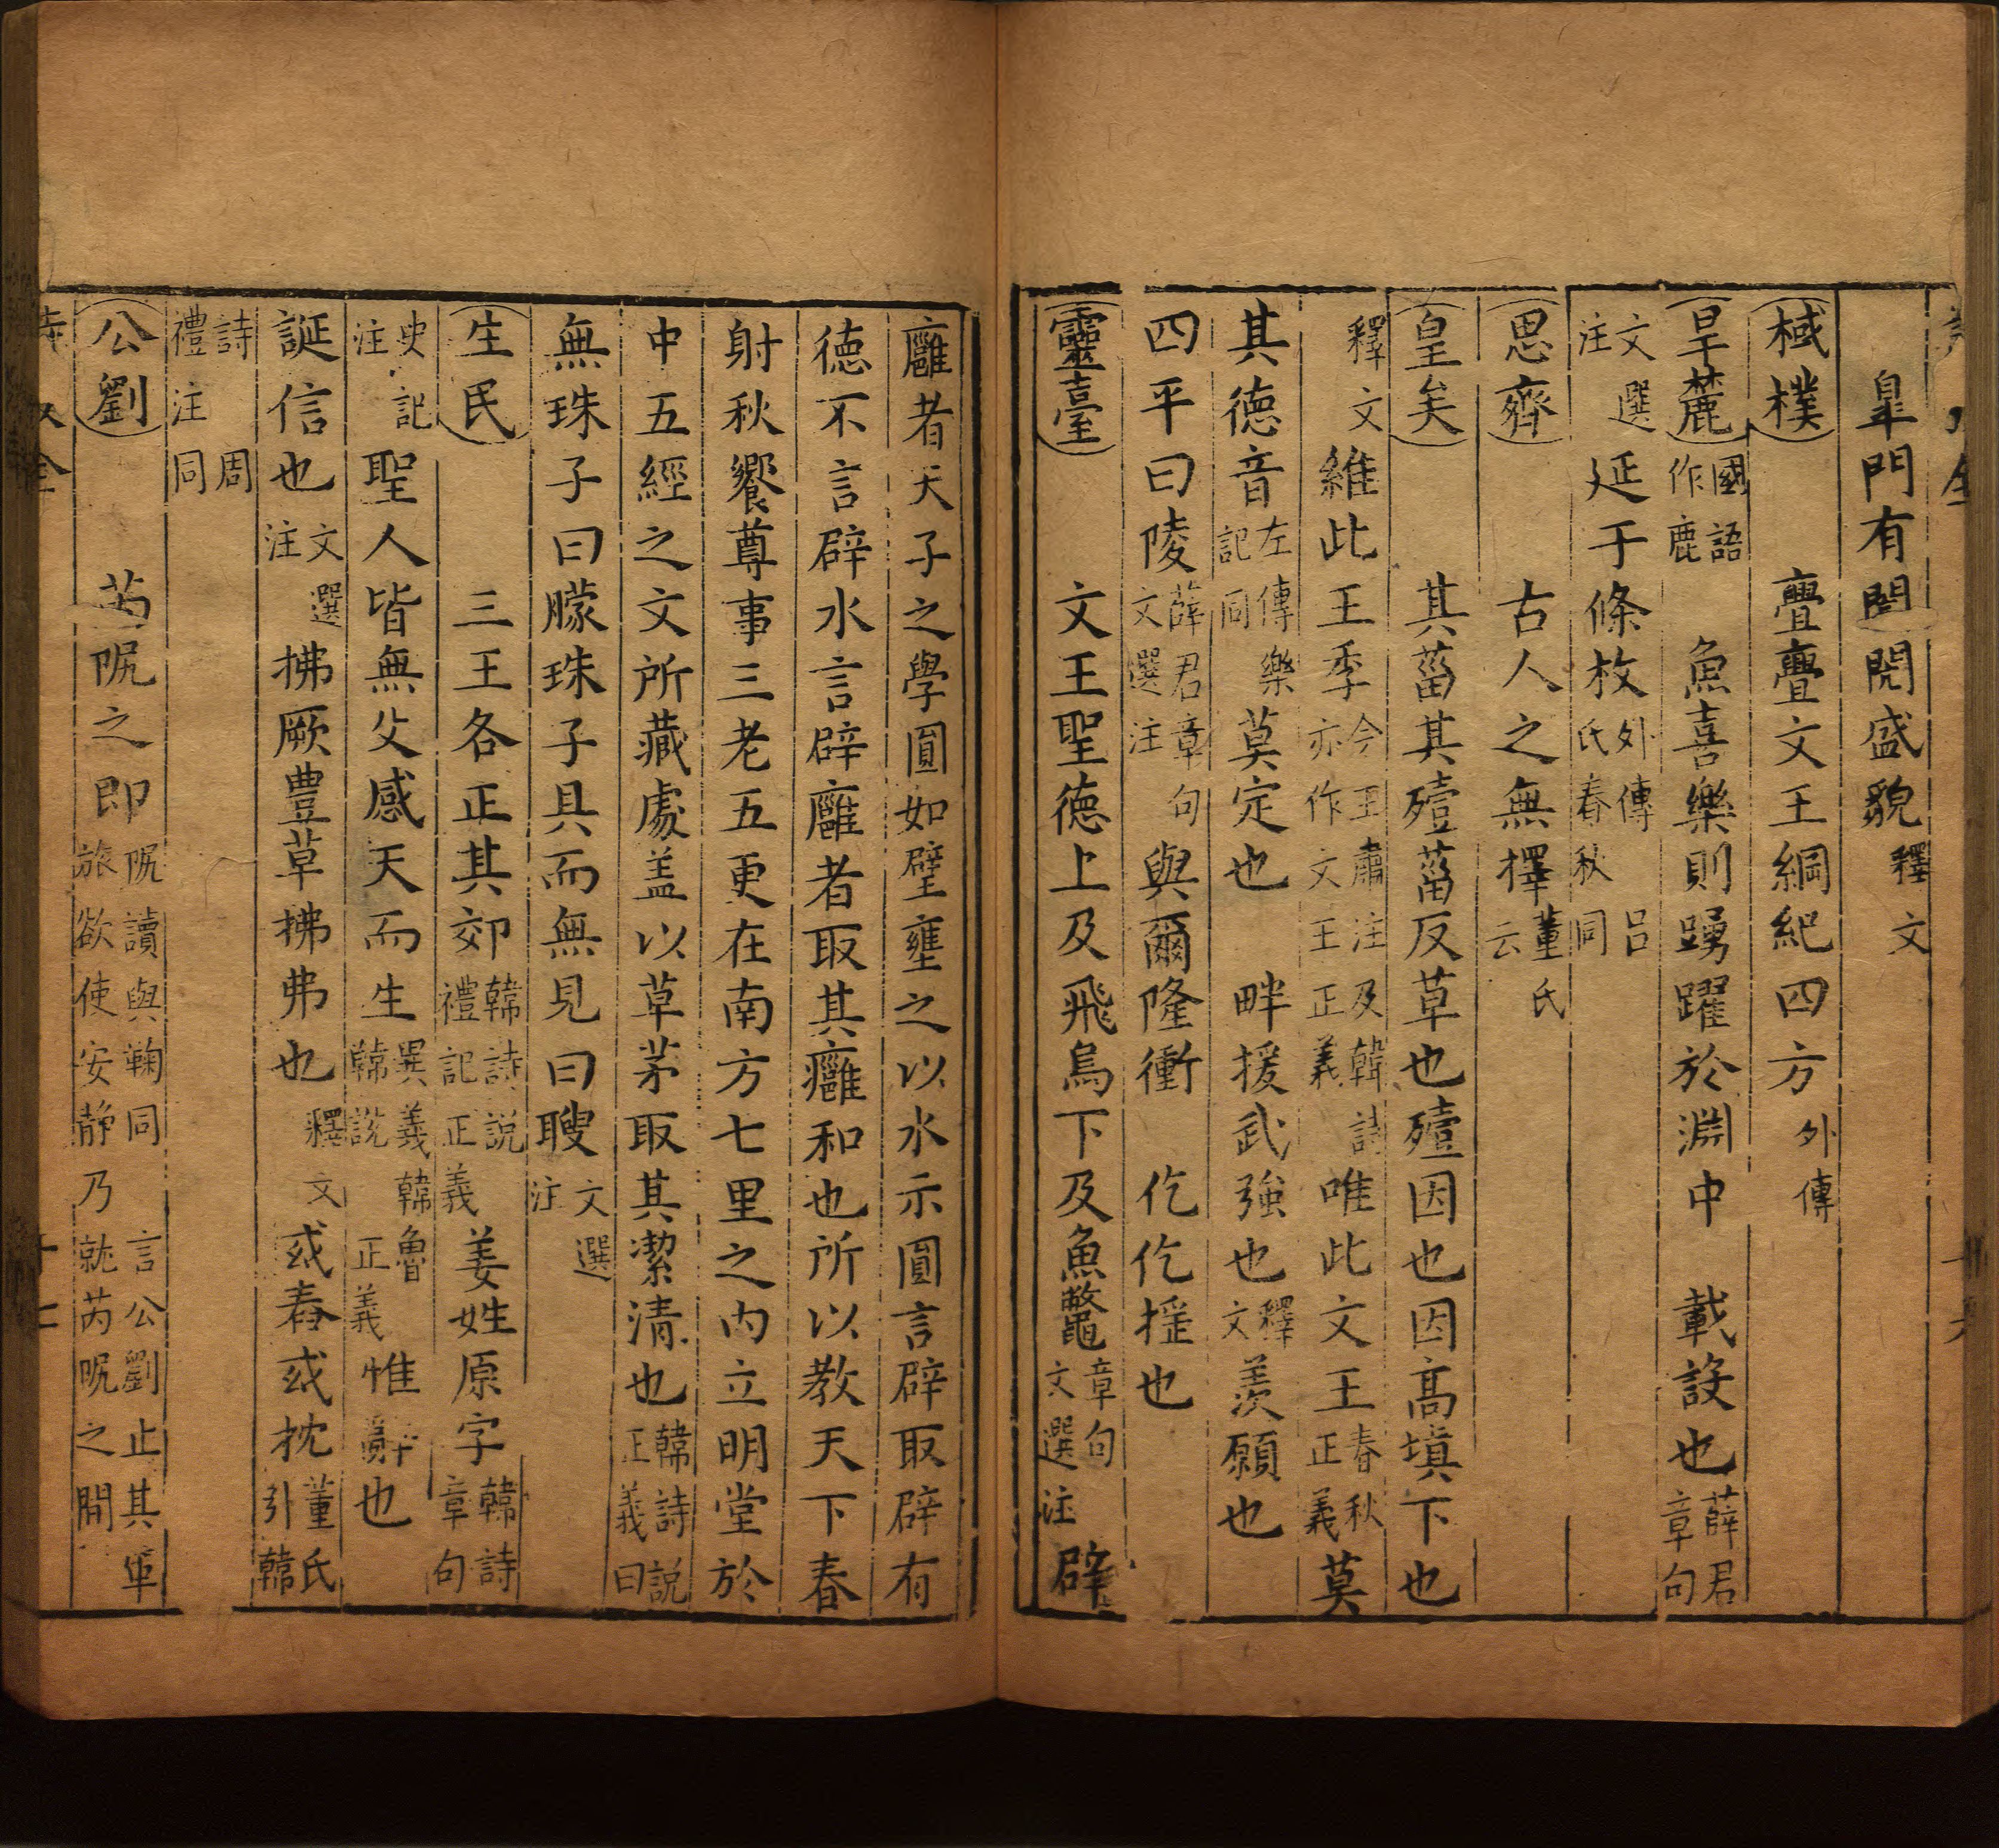 皐門有閌閌盛貌釋文
棫樸 亹亹文王綱紀四方外傳
旱麓國語作鹿 魚喜樂則踴躍於淵中 載設也薛君章句
文選注延于條枚外傳呂氏春秋同
思齊 古人之無擇董氏云
皇矣 其菑其殪菑反草也殪因也因高塡下也
釋文維此王季今王肅注及韓詩亦作文王正義唯此文王春秋正義莫
其德音左傳樂記同莫定也 畔援武強也釋文羨願也
四平曰陵薛君章句文選注與爾隆衝 仡仡摇也
靈臺 文王聖德上及飛鳥下及魚鼈章句文選注辟
廱者天子之學圓如璧壅之以水示圓言辟取辟有
德不言辟水言辟廱者取其癰和也所以教天下春
射秋饗尊事三老五更在南方七里之内立明堂於
中五經之文所藏處盖以草茅取其潔清也韓詩說正義曰
無珠子曰矇珠子具而無見曰瞍文選注
生民 三王各正其郊韓詩説禮記正義姜姓原字韓詩章句
史記注聖人皆無父感天而生異義韓魯韓説正義惟辭也
誕信也文選注拂厥豊草拂弗也釋文或舂或枕董氏引韓
詩周禮注同
公劉 芮𨸝之即𨸝讀與鞠同 言公劉止其軍旅欲使安静乃就芮𨸝之間